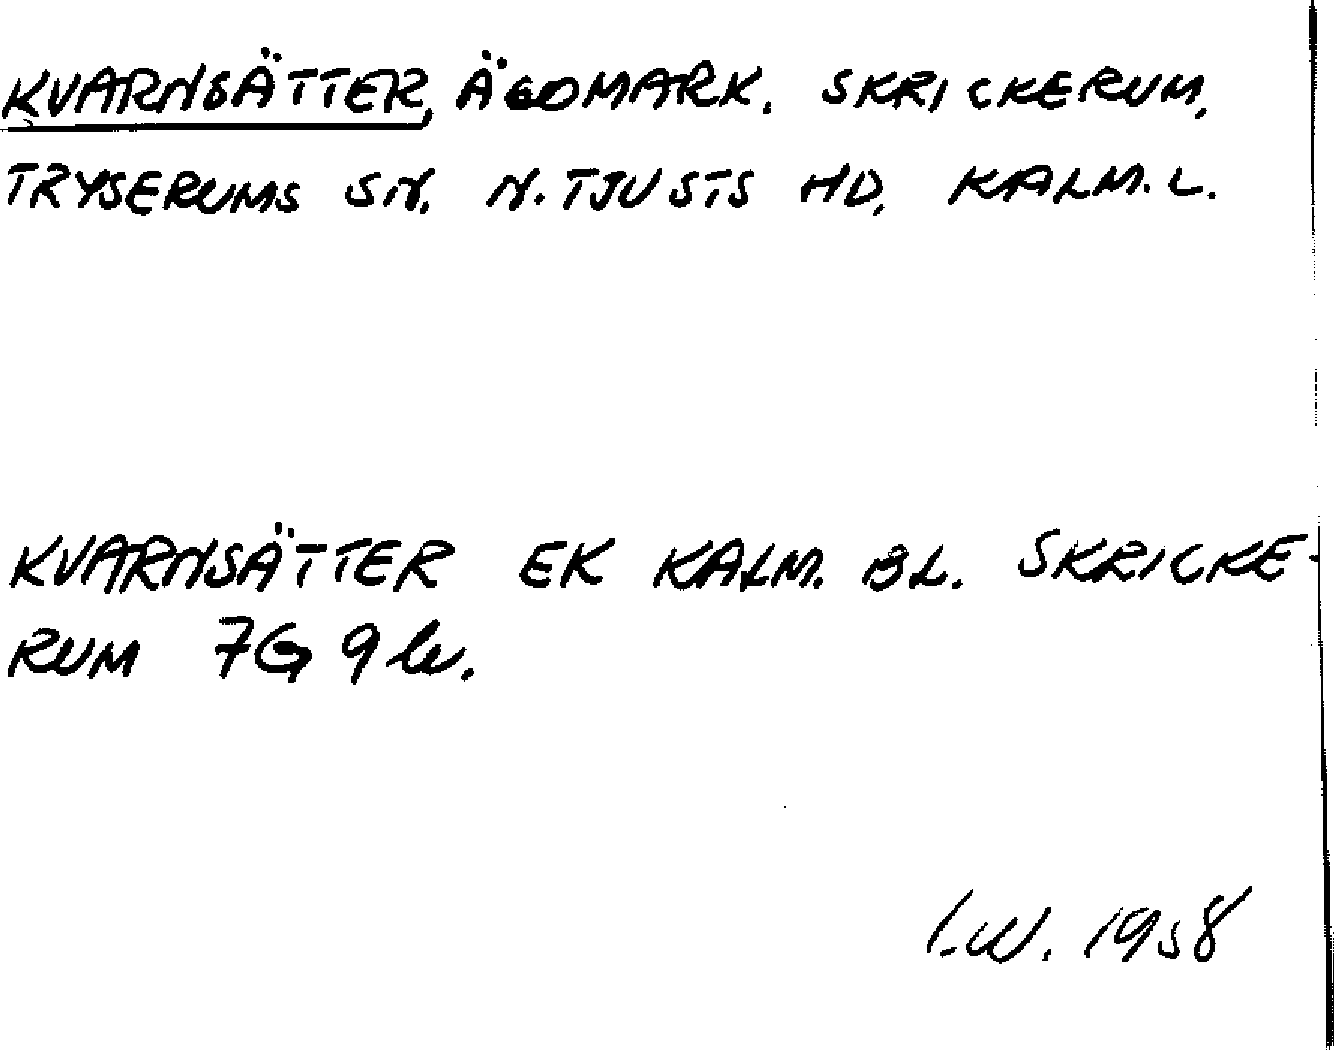 KVARNSÄTTER, ÄGOMARK. SKRICKERUM,
TRYSERUMS SN. N. TJUSTS HD, KALM. L.
KVARNSÄTTER EK KALM. BL. SKRICKE-
RUM 7G 9
I.W. 1958